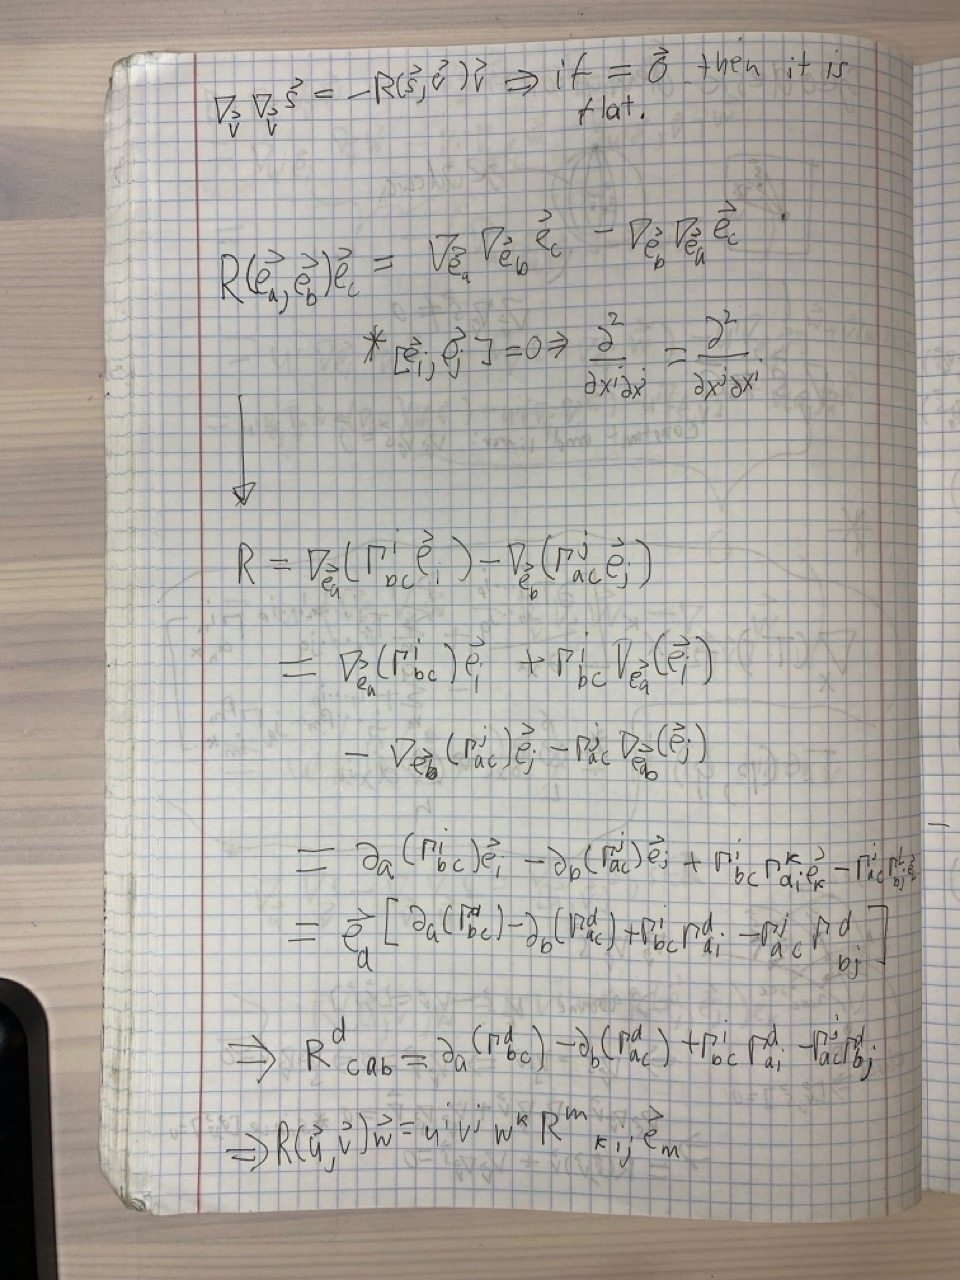 ∇_v⃗ ∇_v⃗ s⃗ = -R(s⃗, v⃗)v⃗ ⇒ if = 0⃗ then it is
flat.
R(e⃗_a, e⃗_b)e⃗_c = ∇_e⃗_a ∇_e⃗_b e⃗_c - ∇_e⃗_b ∇_e⃗_a e⃗_c
* [e⃗_i, e⃗_j] = 0 ⇒ ∂²/∂x^i∂x^j = ∂²/∂x^j∂x^i
↓
R = ∇_e⃗_a(Γ^i_bc e⃗_i) - ∇_e⃗_b(Γ^j_ac e⃗_j)
= ∇_e⃗_a(Γ^i_bc)e⃗_i + Γ^i_bc ∇_e⃗_a(e⃗_i)
- ∇_e⃗_b(Γ^j_ac)e⃗_j - Γ^j_ac ∇_e⃗_b(e⃗_j)
= ∂_a(Γ^i_bc)e⃗_i - ∂_b(Γ^j_ac)e⃗_j + Γ^i_bc Γ^k_ai e⃗_k - Γ^j_ac Γ^l_bj e⃗_l
= e⃗_d [∂_a(Γ^d_bc) - ∂_b(Γ^d_ac) + Γ^i_bc Γ^d_ai - Γ^j_ac Γ^d_bj]
⇒ R^d_cab = ∂_a(Γ^d_bc) - ∂_b(Γ^d_ac) + Γ^i_bc Γ^d_ai - Γ^j_ac Γ^d_bj
⇒ R(u⃗, v⃗)w⃗ = u^i v^j w^k R^m_kij e⃗_m